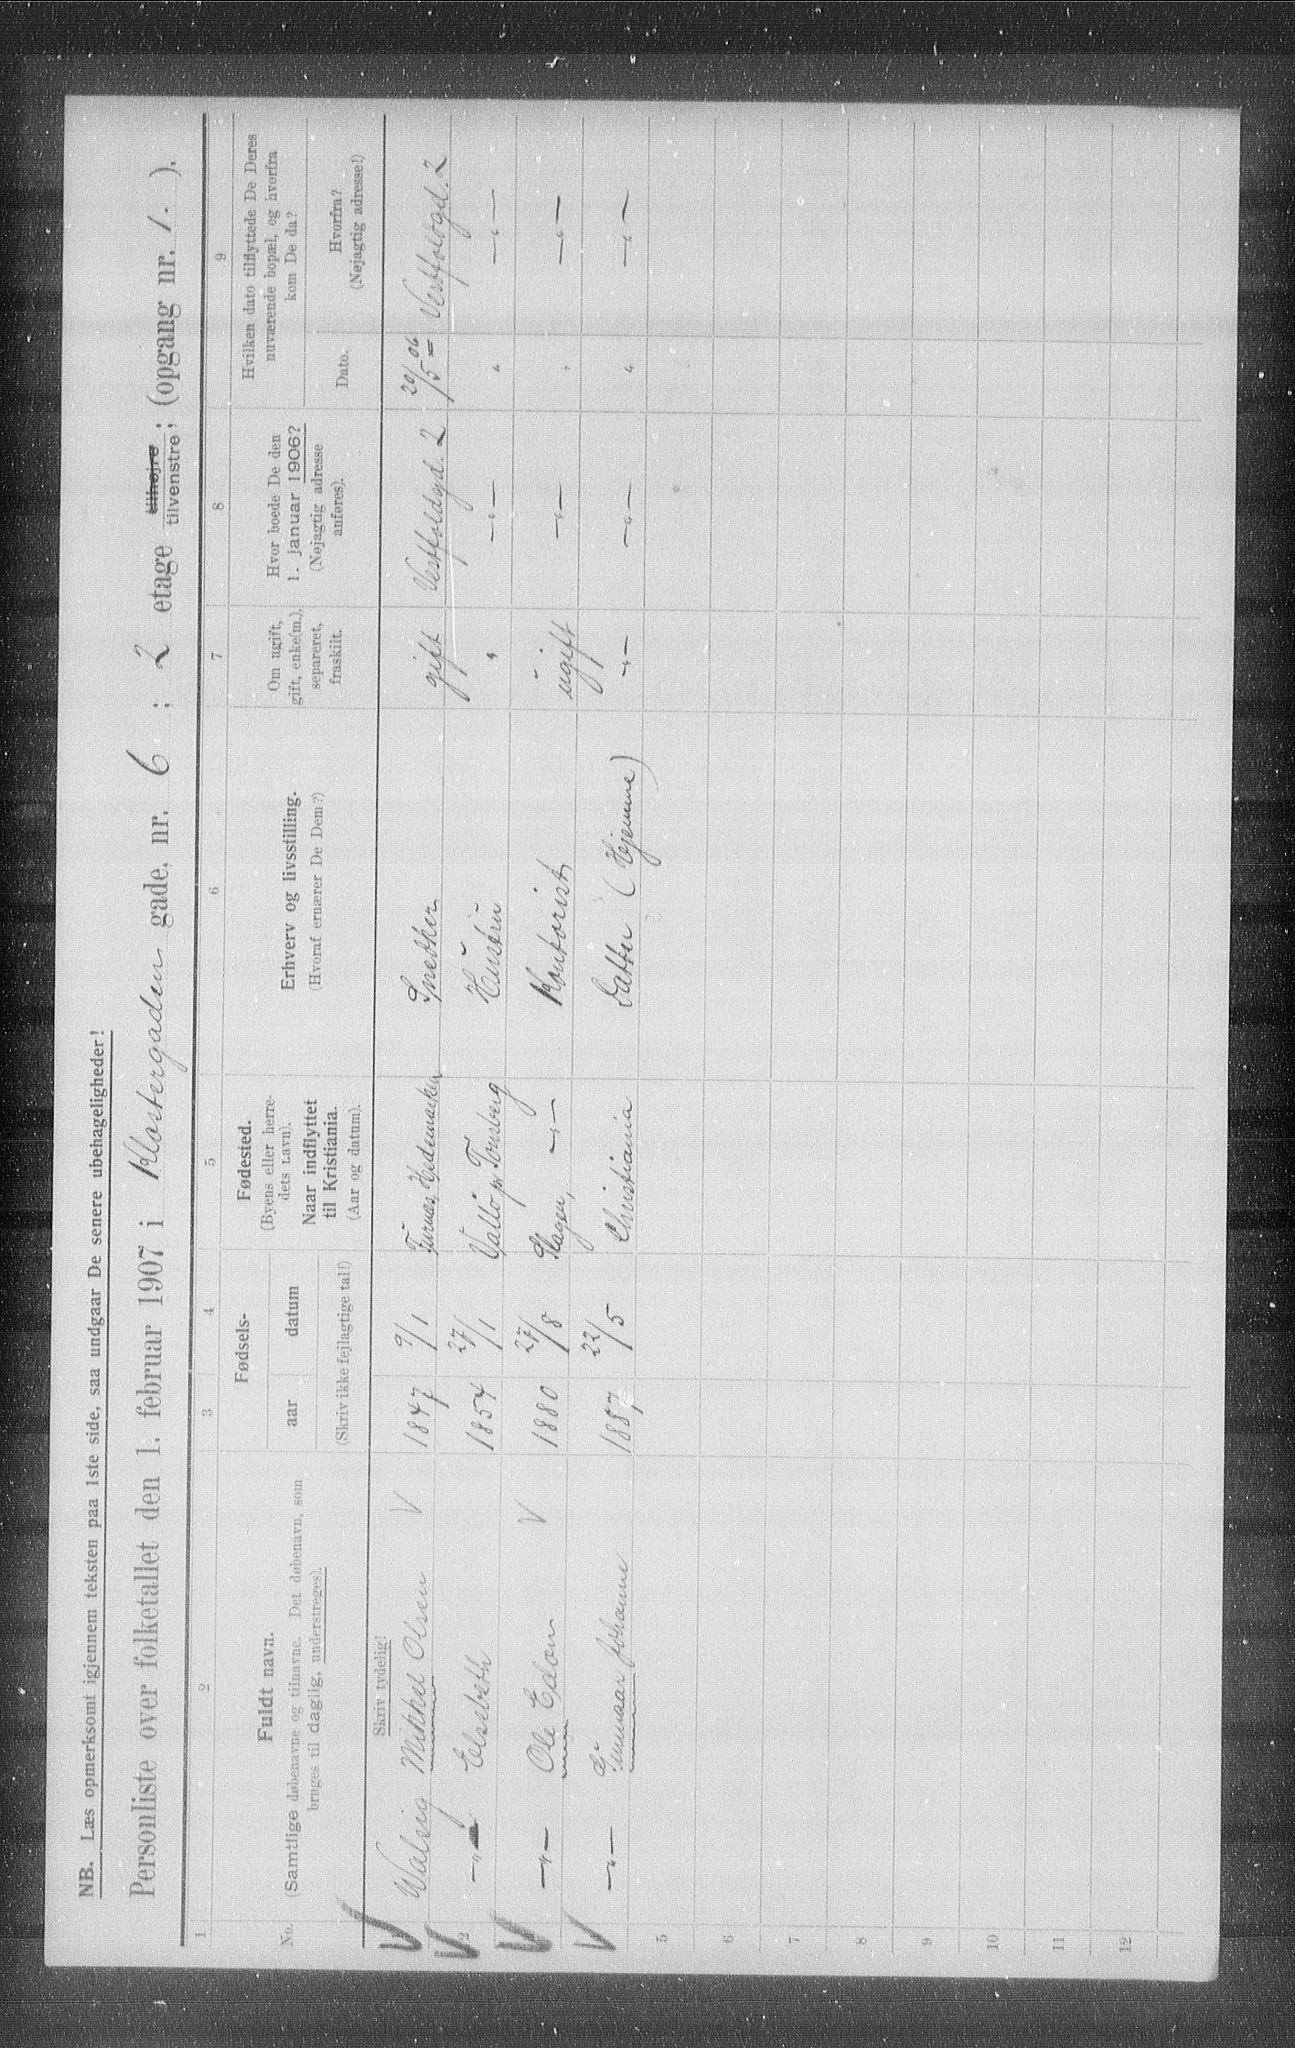 NB. Læs opmerksomt igjennem teksten paa 1ste side, saa undgaar De senere ubehageligheder!
Personliste over folketallet den 1. februar 1907 i Klostergaden gade, nr. 6 ; 2 etage tilhøjre tilvenstre; (opgang nr. 1. ).
1 2 3 4 5 6 7 8 9
No.
Fuldt navn.
(Samtlige døbenavne og tilnavne. Det døbenavn, som
bruges til daglig, understreges).
Fødsels-
aar datum
(Skriv ikke fejlagtige tal!)
Fødested.
(Byens eller herre-
dets navn).
Naar indflyttet
til Kristiania.
(Aar og datum).
Erhverv og livsstilling.
(Hvoraf ernærer De Dem?)
Om ugift,
gift, enke(m.),
separeret,
fraskilt.
Hvor boede De den
1. januar 1906?
(Nøjagtig adresse
anføres).
Hvilken dato tilflyttede De Deres
nuværende bopæl, og hvorfra
kom De da?
Dato.
Hvorfra?
(Nøjagtig adresse!)
Skriv tydelig!
Mikkel Olsen V 1847 9/1 Furnæs, Hedemarken Snedker gift Vestfoldgd. 2 20/5 06 = Vestfoldgd. 2
2 —„— Elsebeth 1854 27/1 Vallö pr Tønsberg Hustru „ —„— „ —„—
—„— Ole Edon V 1880 27/8 Slagen, —„— Kontorist ugift —„— „ —„—
—„— Gunnaar Johanne 1887 22/5 Christiania Datter (Hjemme) —„— —„— „ —„—
5
6
7
8
9
10
11
12